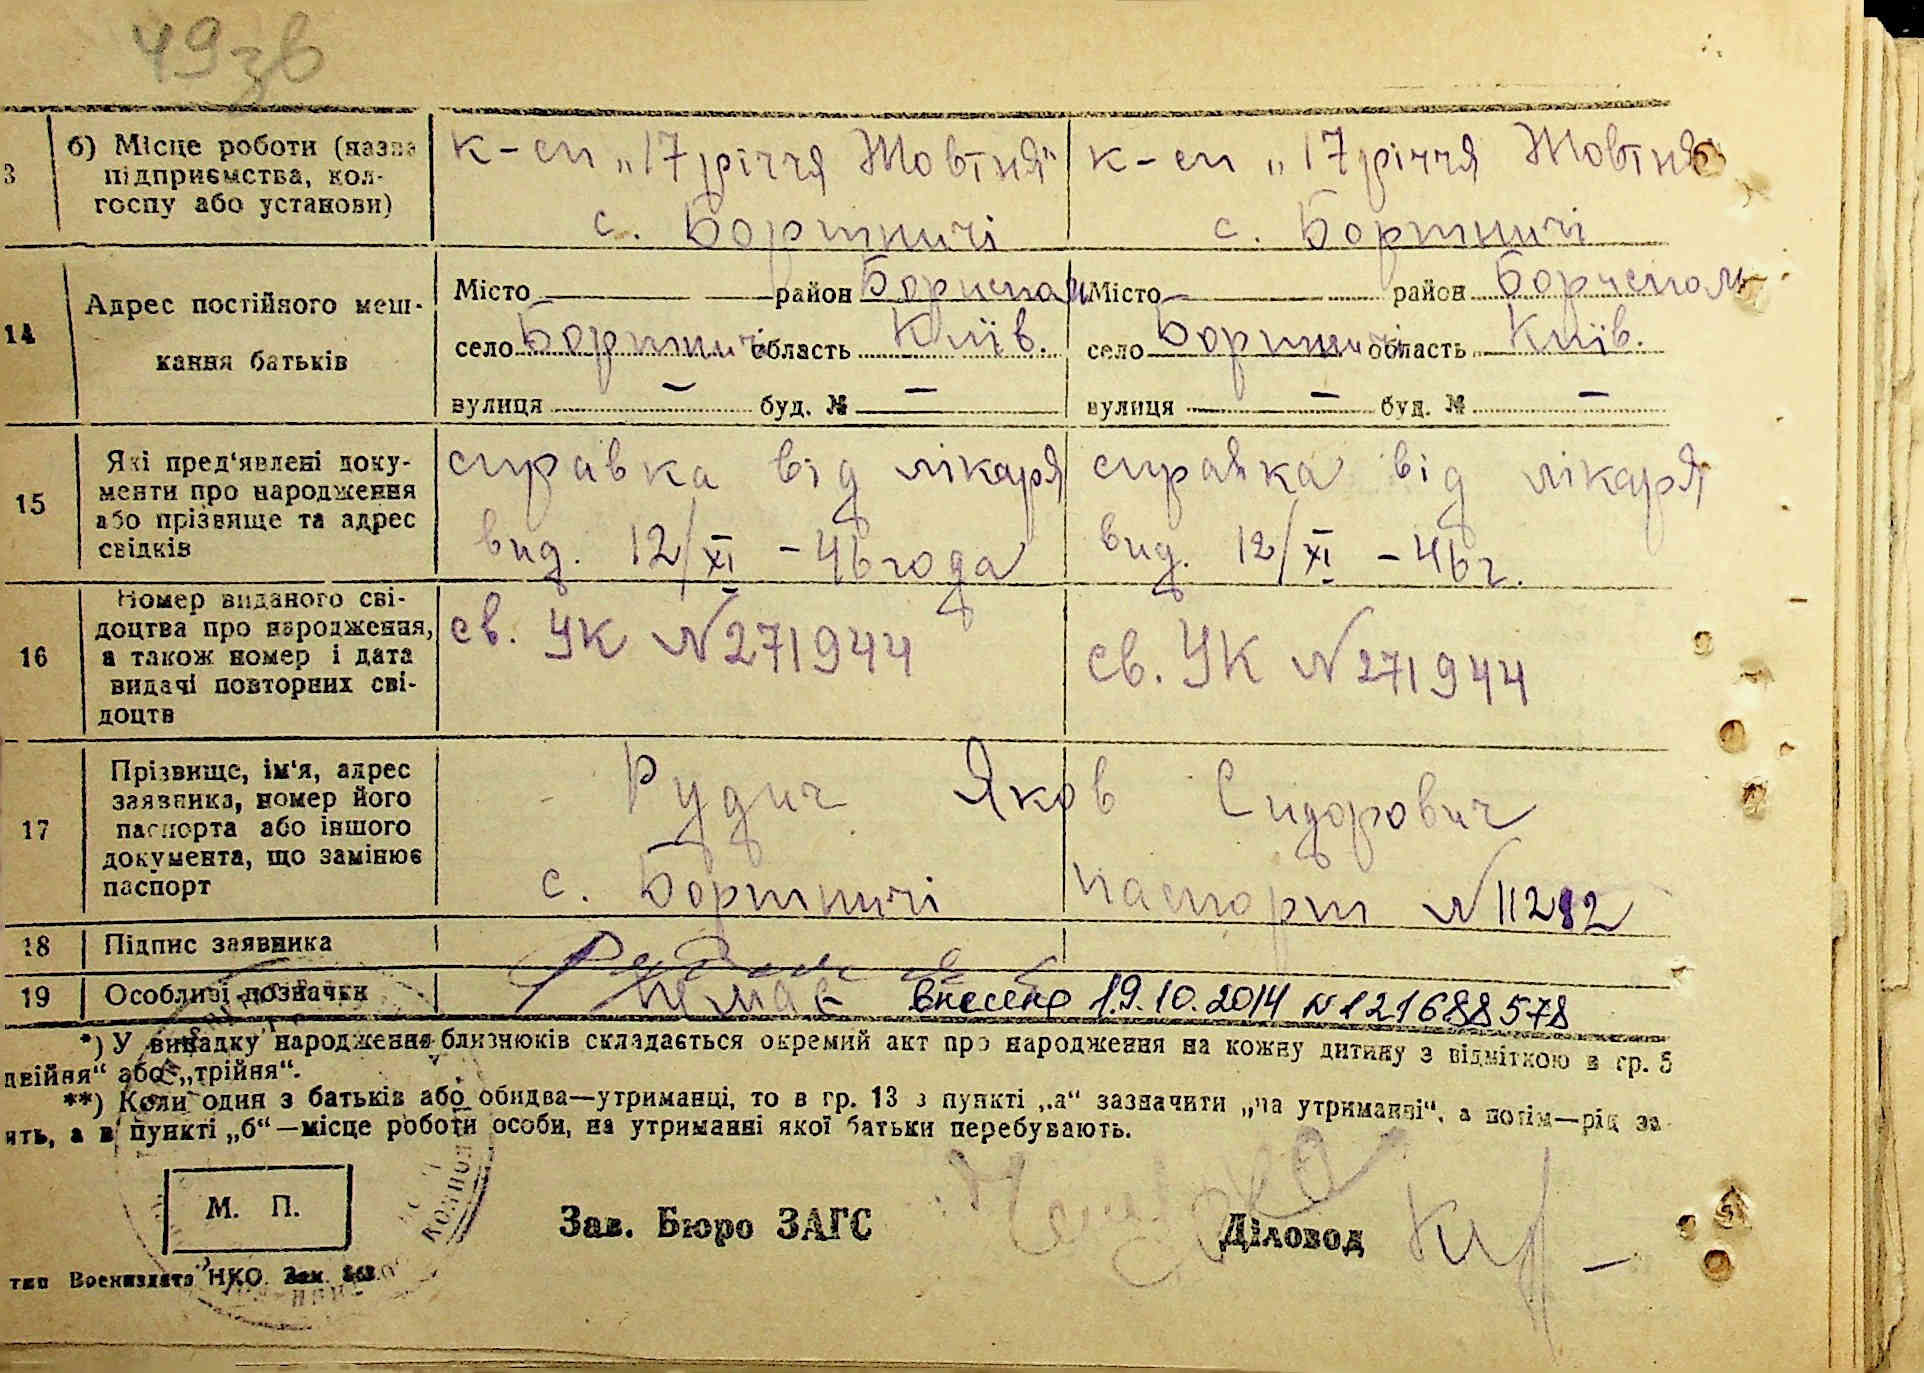 49зв
3
б) Місце роботи (назва
підприємства, кол-
госпу або установи)
к-сп „17 річчя Жовтня"
с. Бортничі
к-сп „17 річчя Жовтня
с. Бортничі
14
Адрес постійного меш-
кання батьків
Місто — район Бориспол
село Бортничі область Київ.
вулиця — буд. № —
Місто — район Бориспіль
село Бортничі область Київ.
вулиця — буд. № —
15
Які пред'явлені доку-
менти про народження
або прізвище та адрес
свідків
справка від лікаря
вид. 12/XI -46 года
справка від лікаря
вид. 12/XI -46 г.
16
Номер виданого сві-
доцтва про народження,
а також номер і дата
видачі повторних сві-
доцтв
св. УК №271944
св. УК №271944
17
Прізвище, ім'я, адрес
заявника, номер його
паспорта або іншого
документа, що замінює
паспорт
Рудич Яков Сидорович
с. Бортничі паспорт №11282
18
Підпис заявника
19
Особливі позначки
немає внесено 19.10.2014 №121688578
*) У випадку народження близнюків складається окремий акт про народження на кожну дитину з відміткою в гр. 5
двійня" або „трійня".
**) Коли один з батьків або обидва—утриманці, то в гр. 13 з пункті „а" зазначити „на утриманні", а потім—рід за-
ять, а в пункті „б"—місце роботи особи, на утриманні якої батьки перебувають.
М. П.
Зав. Бюро ЗАГС
Діловод
тип Воениздата НКО. Зам.